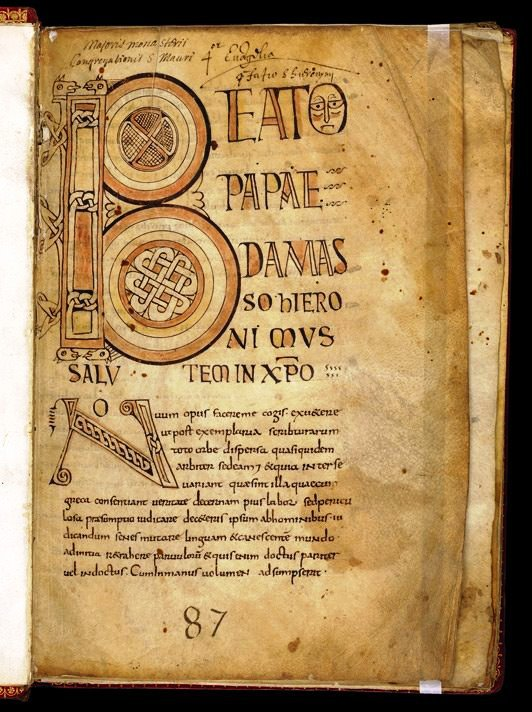 Majoris monasterii
Congregationis S Mauri 4or Evāgelia
BEATO
PAPAE
DAMAS
SO hIERO
NIMUS
SALUTEM IN XP̄O
Nouum opus facere me cogis · ex uetere
ut post exemplaria scribturarum
toto orbe dispersa quasi quidem
arbiter sedeam 7 & quia inter se
uariant quae sint illa quae cum
greca consentiant ueritate decernam pius labor sed pericu
losa praesumptio iudicare de ceteris ipsum ab hominibus iu
dicandum senis mutare linguam & canescentē mundo ·
ad initia retrahere paruulorū & quis enim doctus pariter
uel indoctus. Cum in manus uolumen adsumpserit ·
87